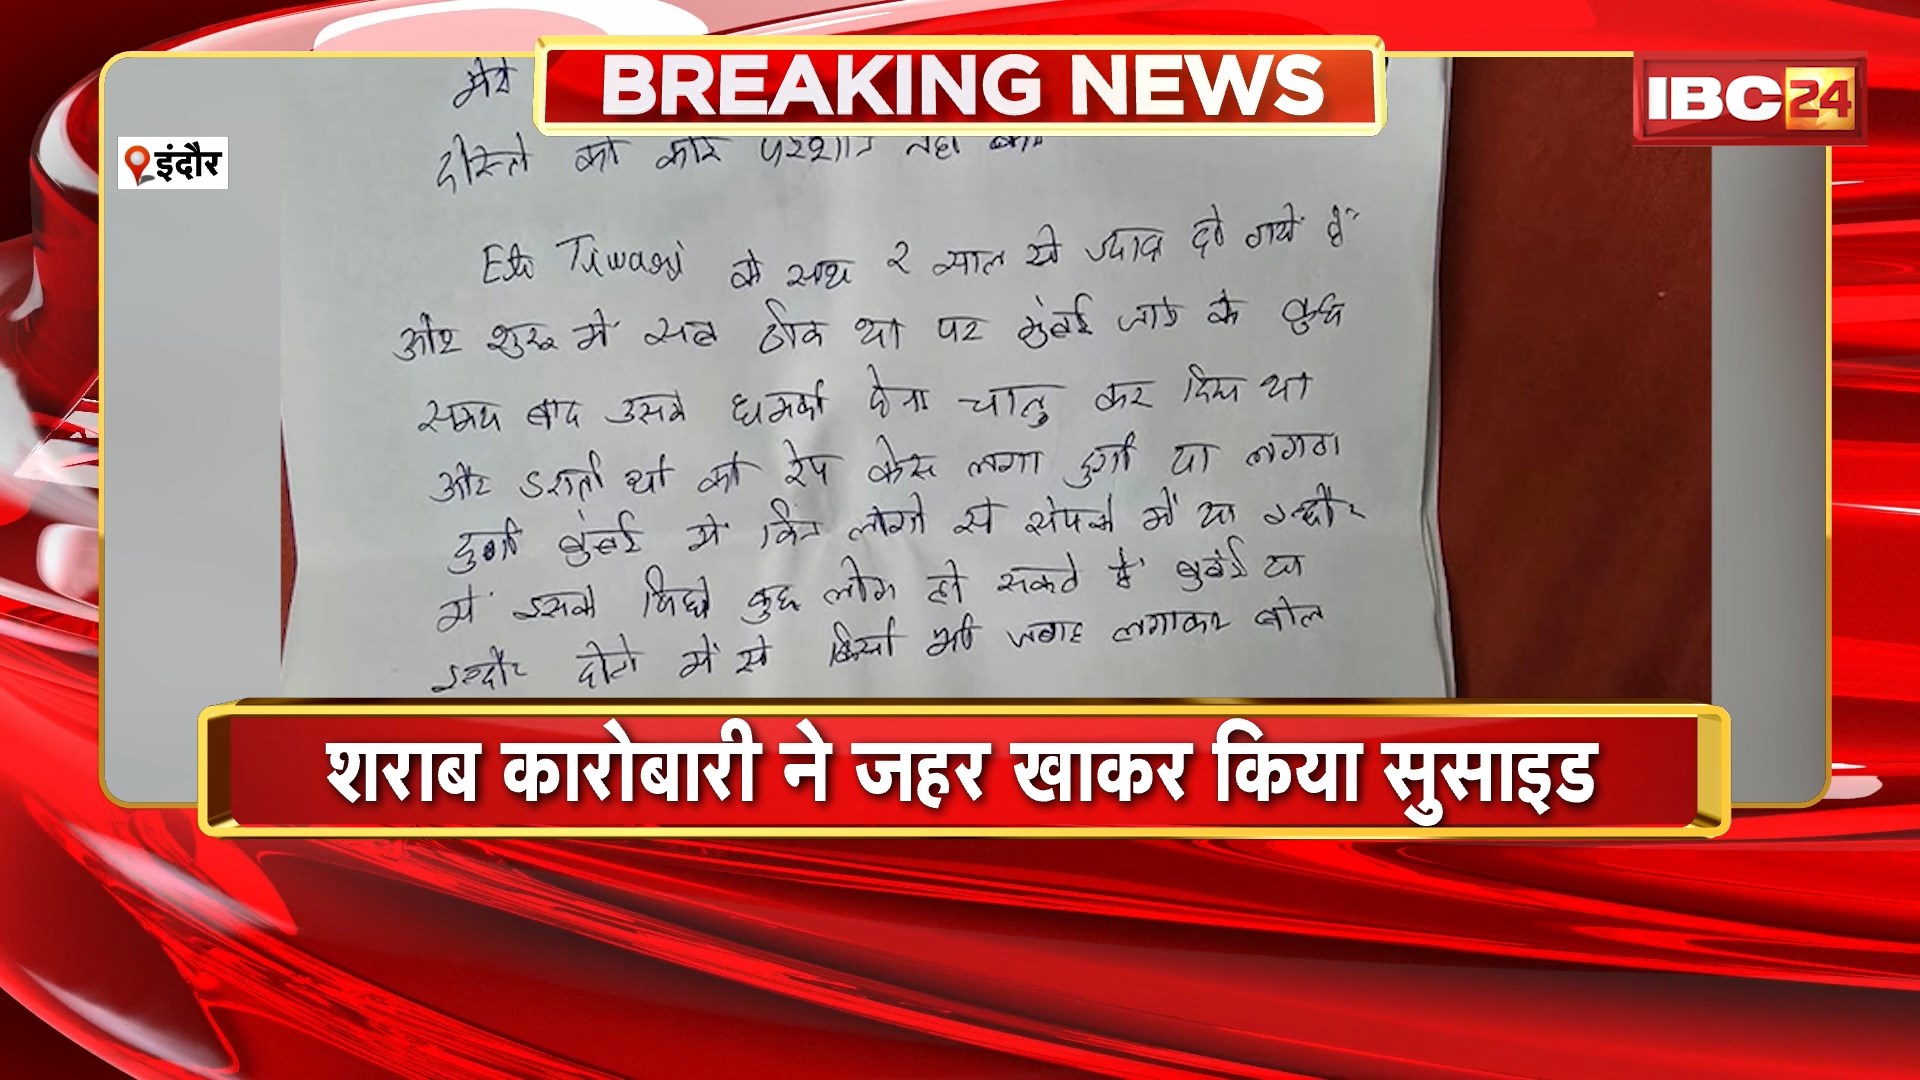 BREAKING NEWS
IBC24
इंदौर
मेरे
दोस्तो को कोई परेशान नहीं करे
Etti Tiwari के साथ २ साल से ज्यादा हो गये हैं
और शुरू में सब ठीक था पर मुंबई जाने के कुछ
समय बाद उसने धमकी देना चालु कर दिया था
और डराती थी की रेप केस लगा दुगी या लगवा
दुगी मुंबई में किन लोगो से संपर्क में या इन्दौर
में इसके पिछे कुछ लोग हो सकते हैं मुंबई या
इन्दौर दोनो में से किसी भी जगह लगाकर बोल
शराब कारोबारी ने जहर खाकर किया सुसाइड